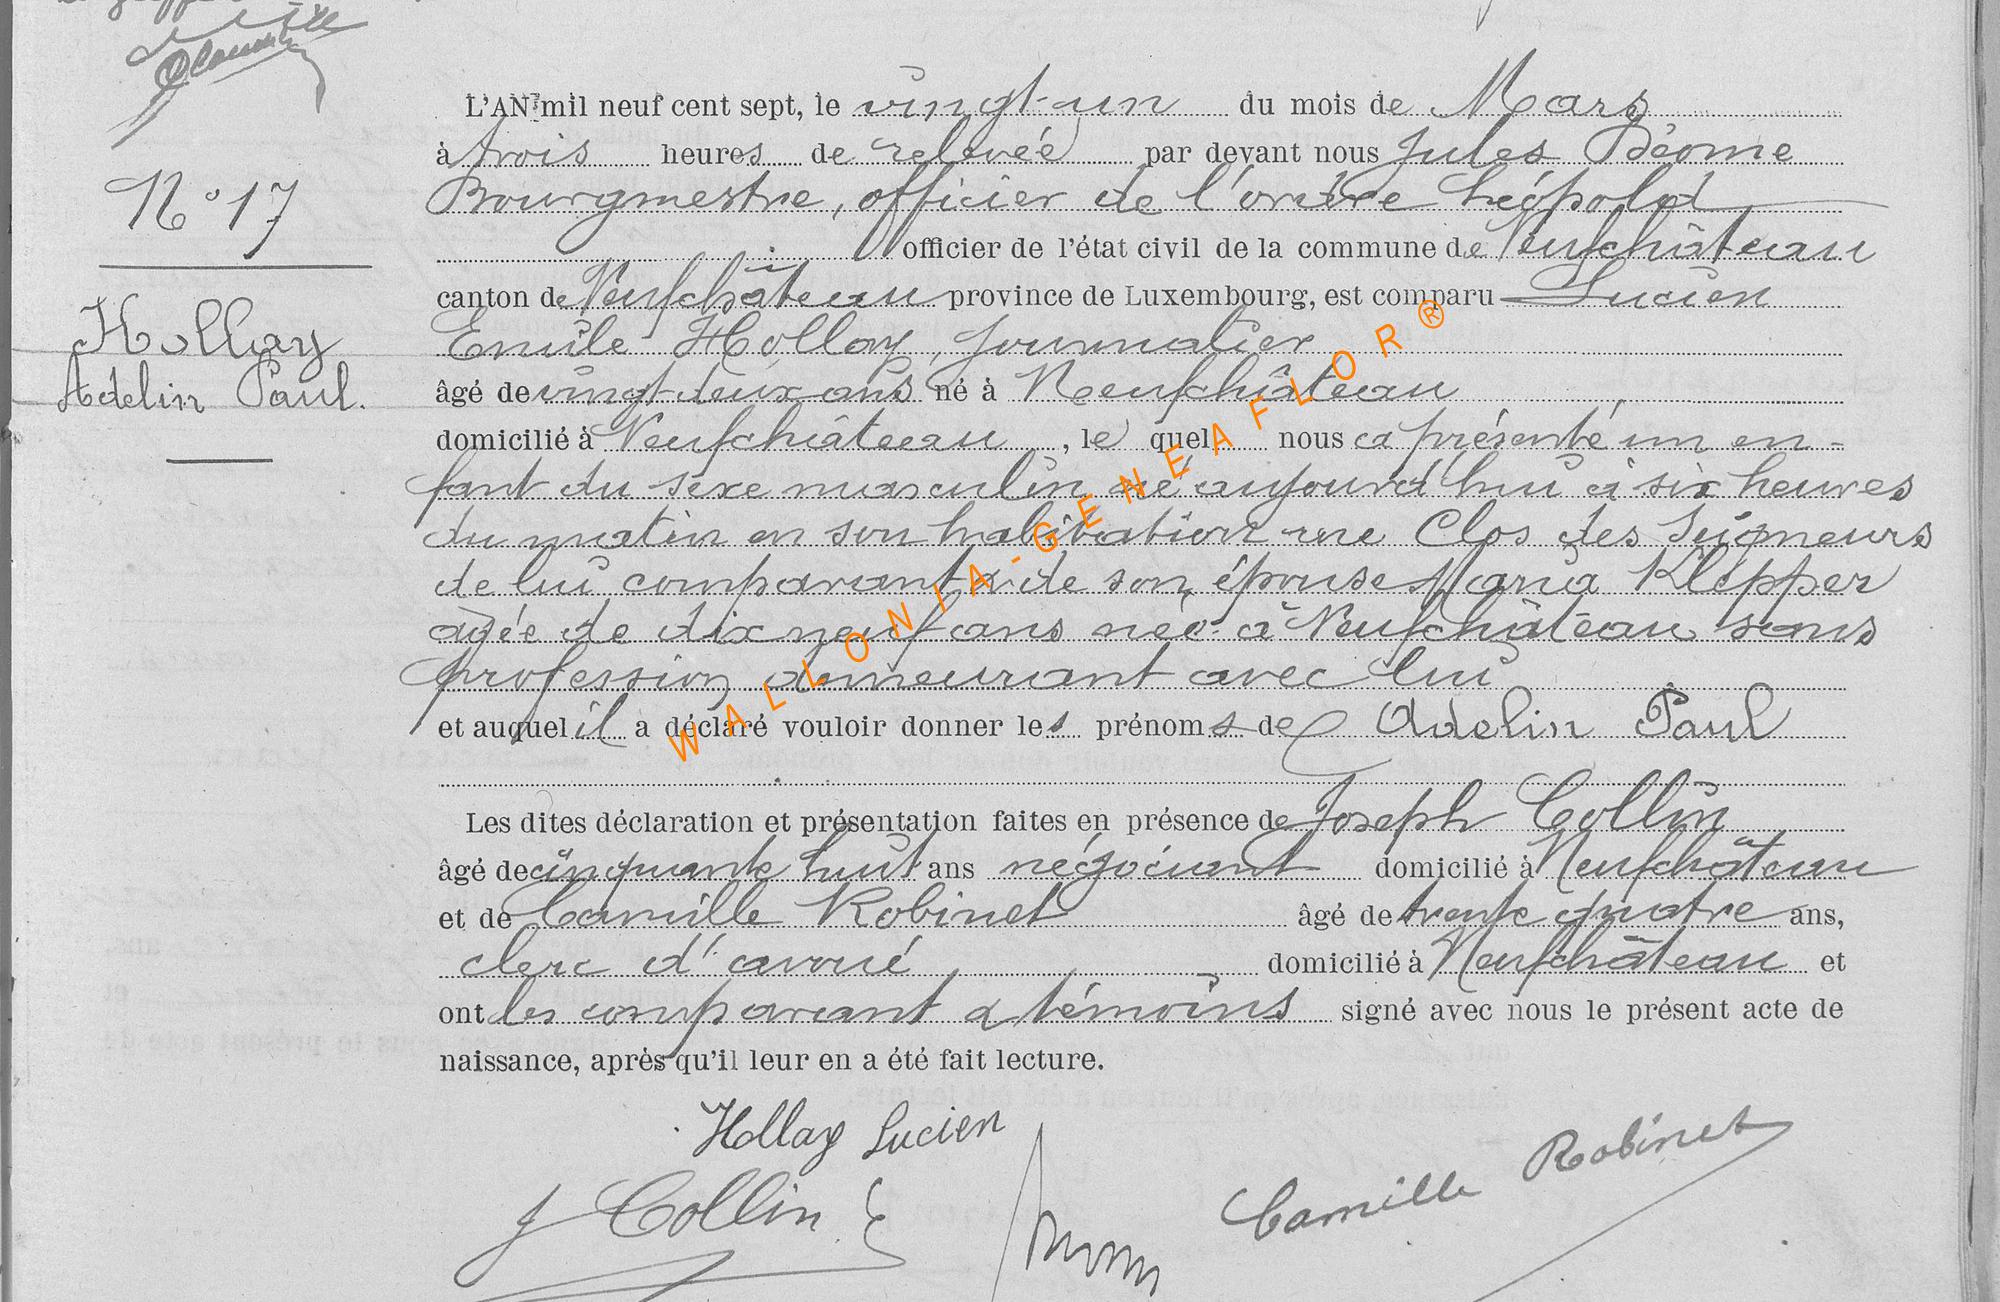 N° 17
Hollay
Adelin Paul.
L'AN mil neuf cent sept, le vingt-un du mois de Mars
à trois heures de relevée par devant nous Jules Déome
Bourgmestre, officier de l'ordre Léopold
officier de l'état civil de la commune de Neufchâteau
canton de Neufchâteau province de Luxembourg, est comparu Lucien
Emile Hollay, journalier
âgé de vingt-deux ans né à Neufchâteau
domicilié à Neufchâteau, lequel nous a présenté un en=
fant du sexe masculin né aujourd'hui à six heures
du matin en son habitation rue Clos des Seigneurs
de lui comparant & de son épouse Maria Klepper
agée de dix neuf ans née à Neufchâteau sans
profession demeurant avec lui
et auquel il a déclaré vouloir donner les prénoms de Adelin Paul
Les dites déclaration et présentation faites en présence de Joseph Collin
âgé de cinquante huit ans négociant domicilié à Neufchâteau
et de Camille Robinet âgé de trente quatre ans,
clerc d'avoué domicilié à Neufchâteau et
ont les comparant & témoins signé avec nous le présent acte de
naissance, après qu'il leur en a été fait lecture.
Hollay Lucien
J Collin
Camille Robinet
WALLONIA-GENEAFLOR®